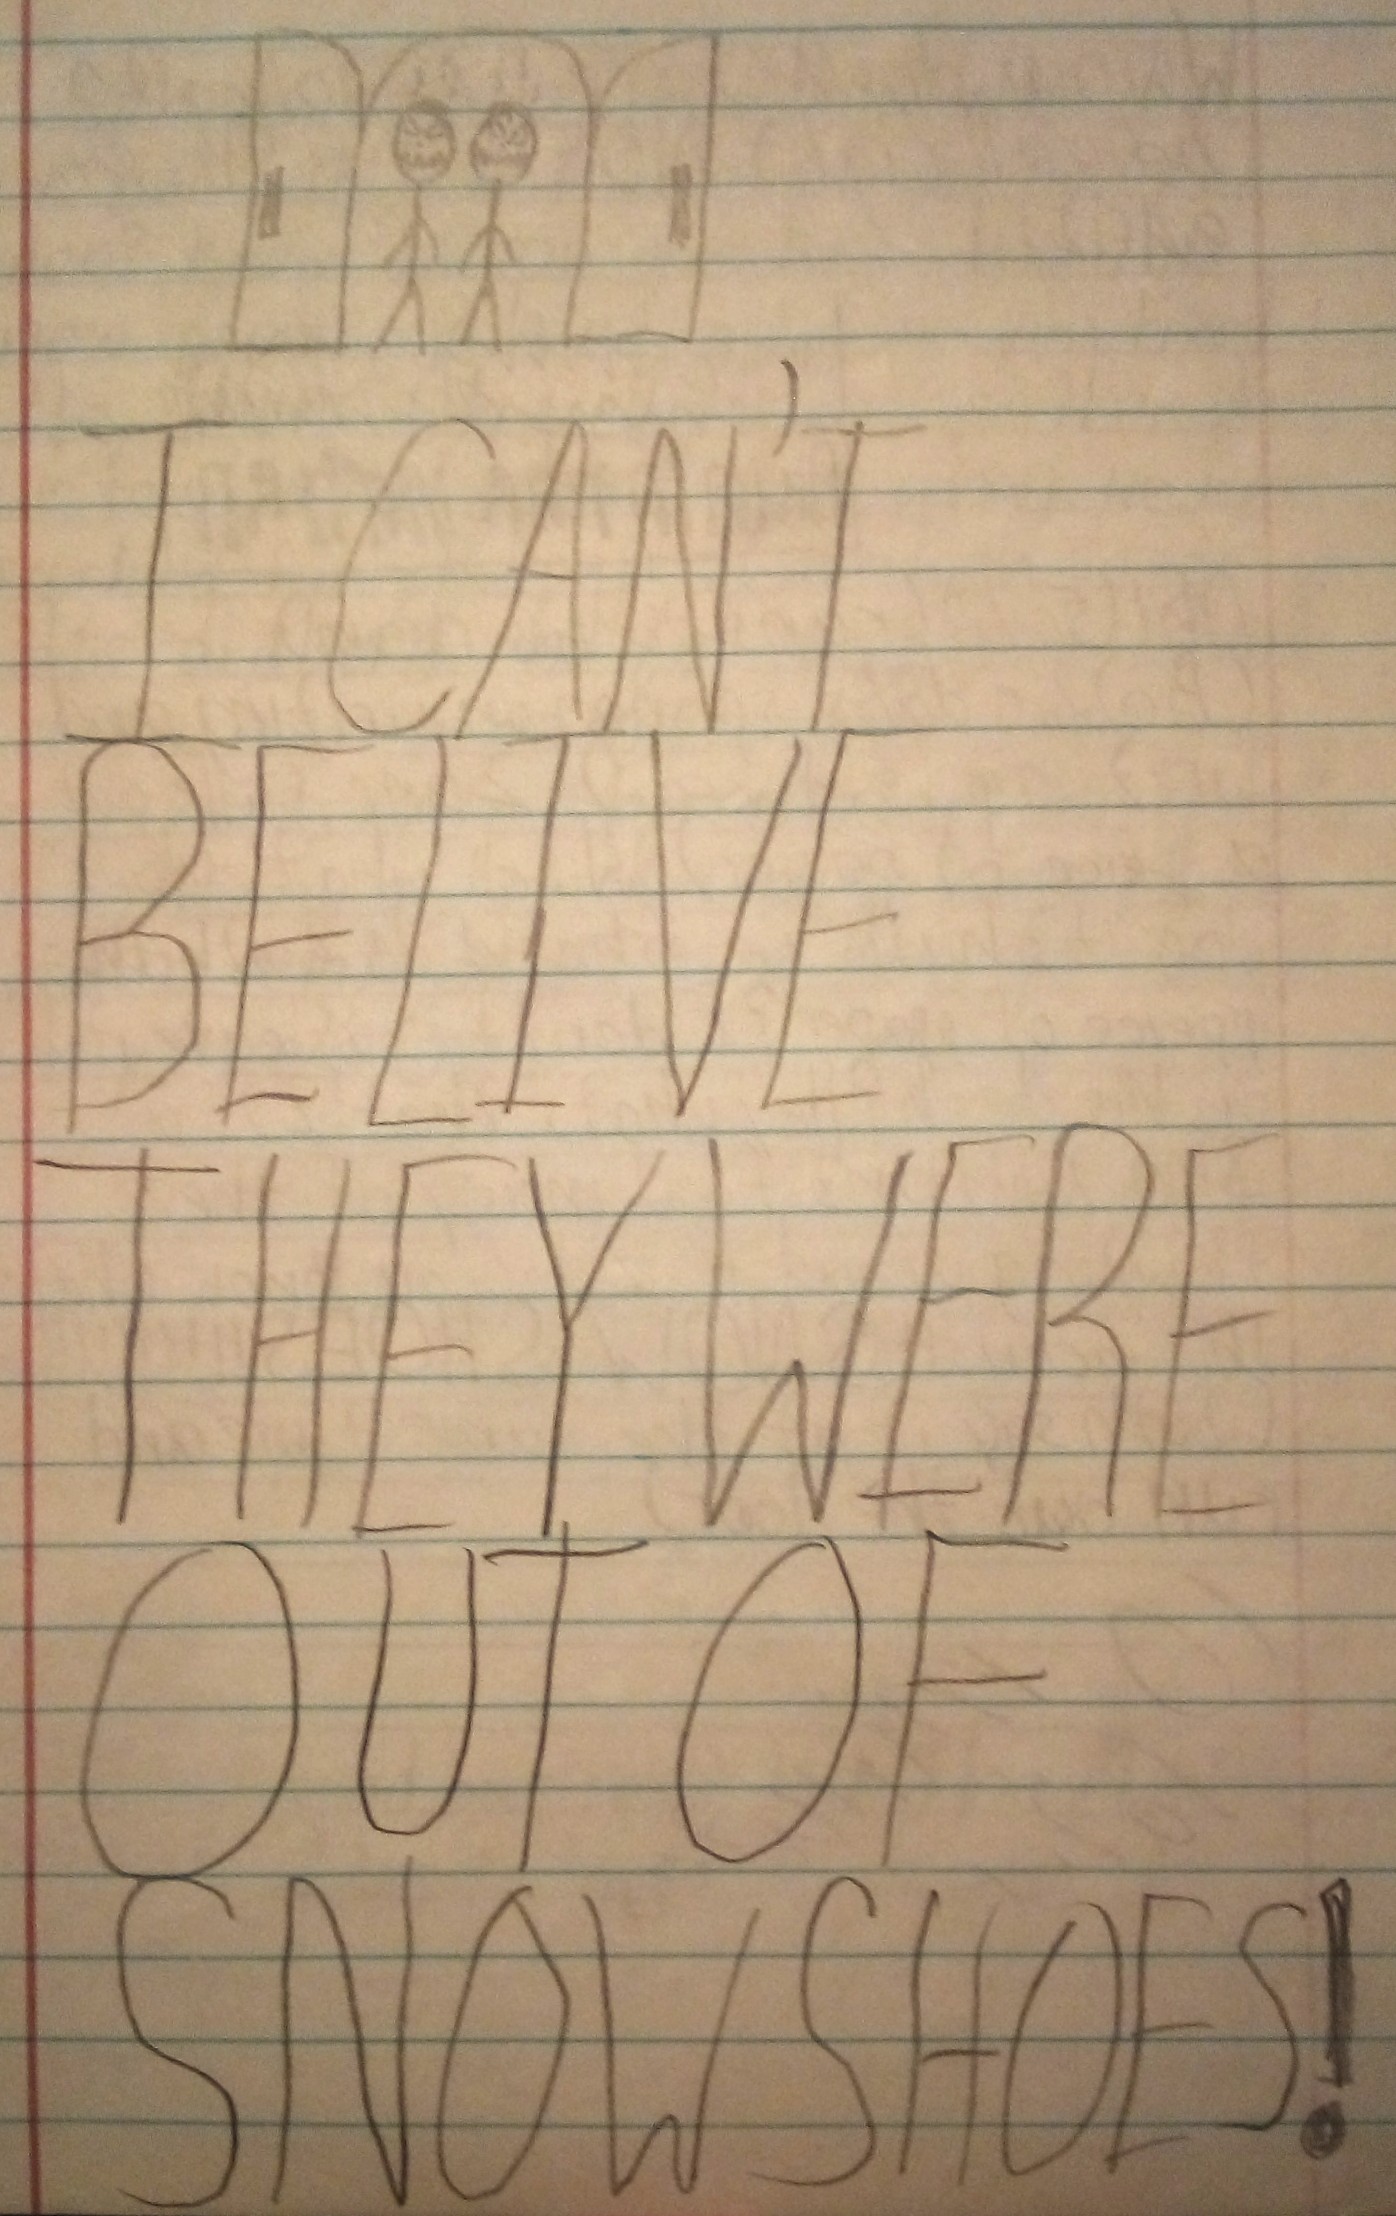 I CAN'T
BELIVE
THEY WERE
OUT OF
SNOWSHOES!